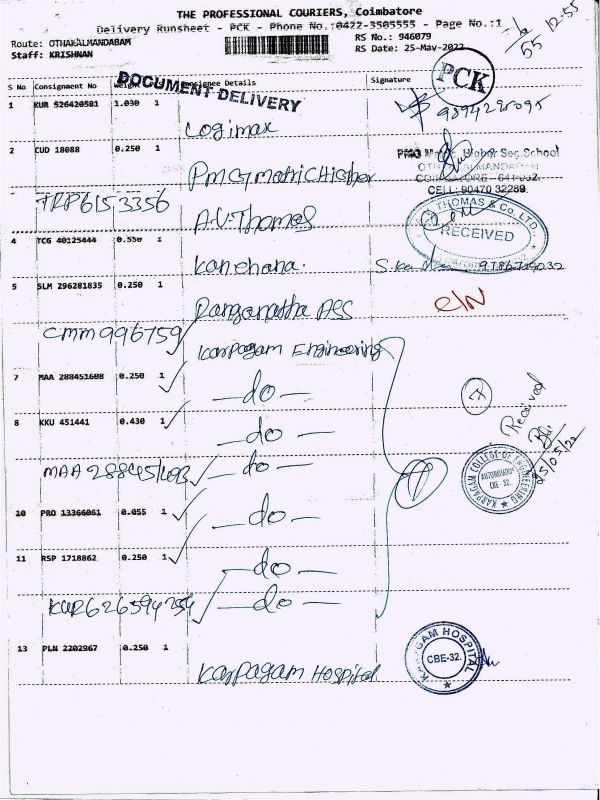 THE PROFESSIONAL COURIERS, Coimbatore
Delivery Runsheet - PCK - Phone No.:0422-3505555 - Page No.:1
Route: OTHAKALMANDABAM
RS No.: 946079
Staff: KRISHNAN
RS Date: 25-May-2022
55 12-55
PCK
S No Consignment No Weight Consignee Details Signature
DOCUMENT DELIVERY
1 KUR 526420581 1.030 1
Logimax
2 CUD 18088 0.250 1
PMG Matric Higher
Sec.School
CELL: 90470 32289
TRP615 3356
A.V. Thomas
THOMAS & Co. LTD.,
RECEIVED
4 TCG 40125444 0.550 1
Kanchana.
5 SLM 296281835 0.250 1
Ranganatha Ass
CMM996759
Karpagam Engineering
7 MAA 288451608 0.250 1
—do—
8 KKU 451441 0.430 1
—do—
MAA288451693
—do—
10 PRO 13366061 0.055 1
—do—
11 RSP 1718862 0.250 1
—do—
KUR626594254
—do—
7
7
Received
25/05/22
KARPAGAM COLLEGE OF ENGINEERING
AUTONOMOUS
CBE-32.
13 PLN 2202967 0.250 1
Karpagam Hospital
KARPAGAM HOSPITAL
CBE-32.